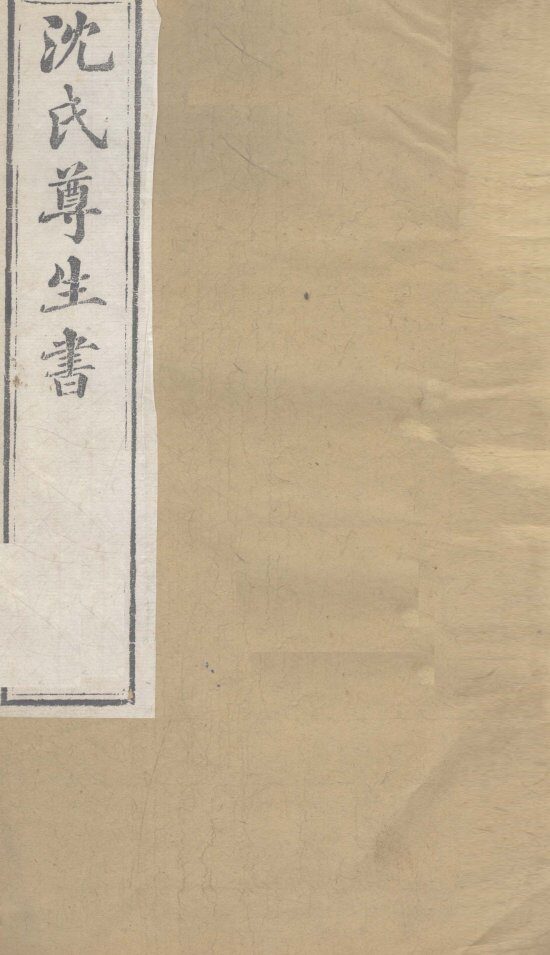 沈氏尊生書